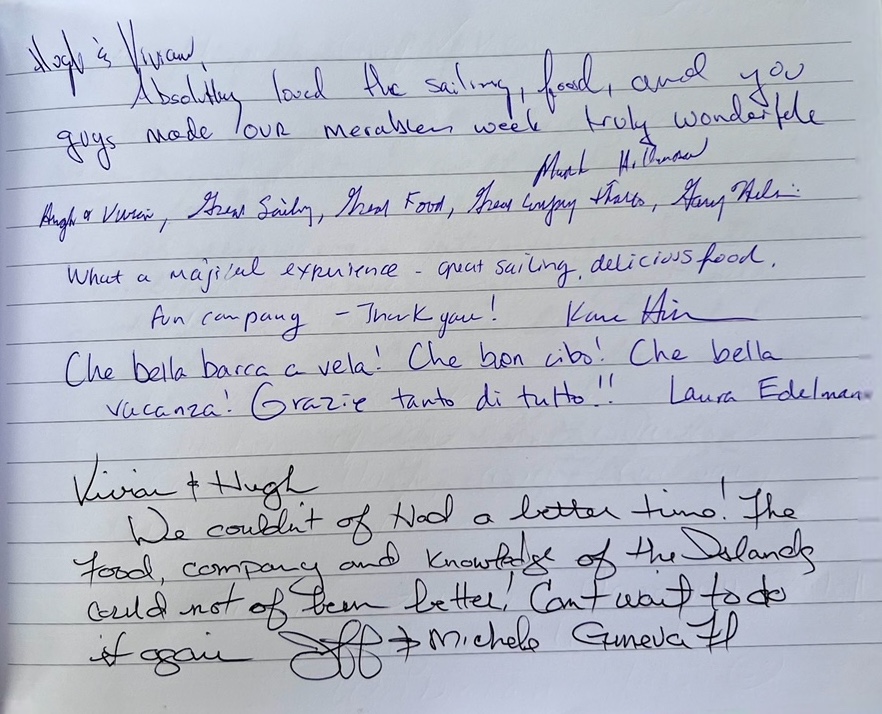 Hugh & Vivian,
Absolutley loved the sailing, food, and you
guys made our week truly wonderfule
Mark
Hugh & Vivian, Great Sailing, Great Food, Great Company Thanks, Gary
What a majical experience - great sailing, delicious food,
fun company - Thank you!
Che bella barca a vela! Che bon cibo! Che bella
vacanza! Grazie tanto di tutto!! Laura Edelman
Vivian & Hugh
We couldn't of Had a better time! The
Food, company and knowledge of the Islands
could not of been better! Cant wait to do
it again Jeff & Michele Geneva Il